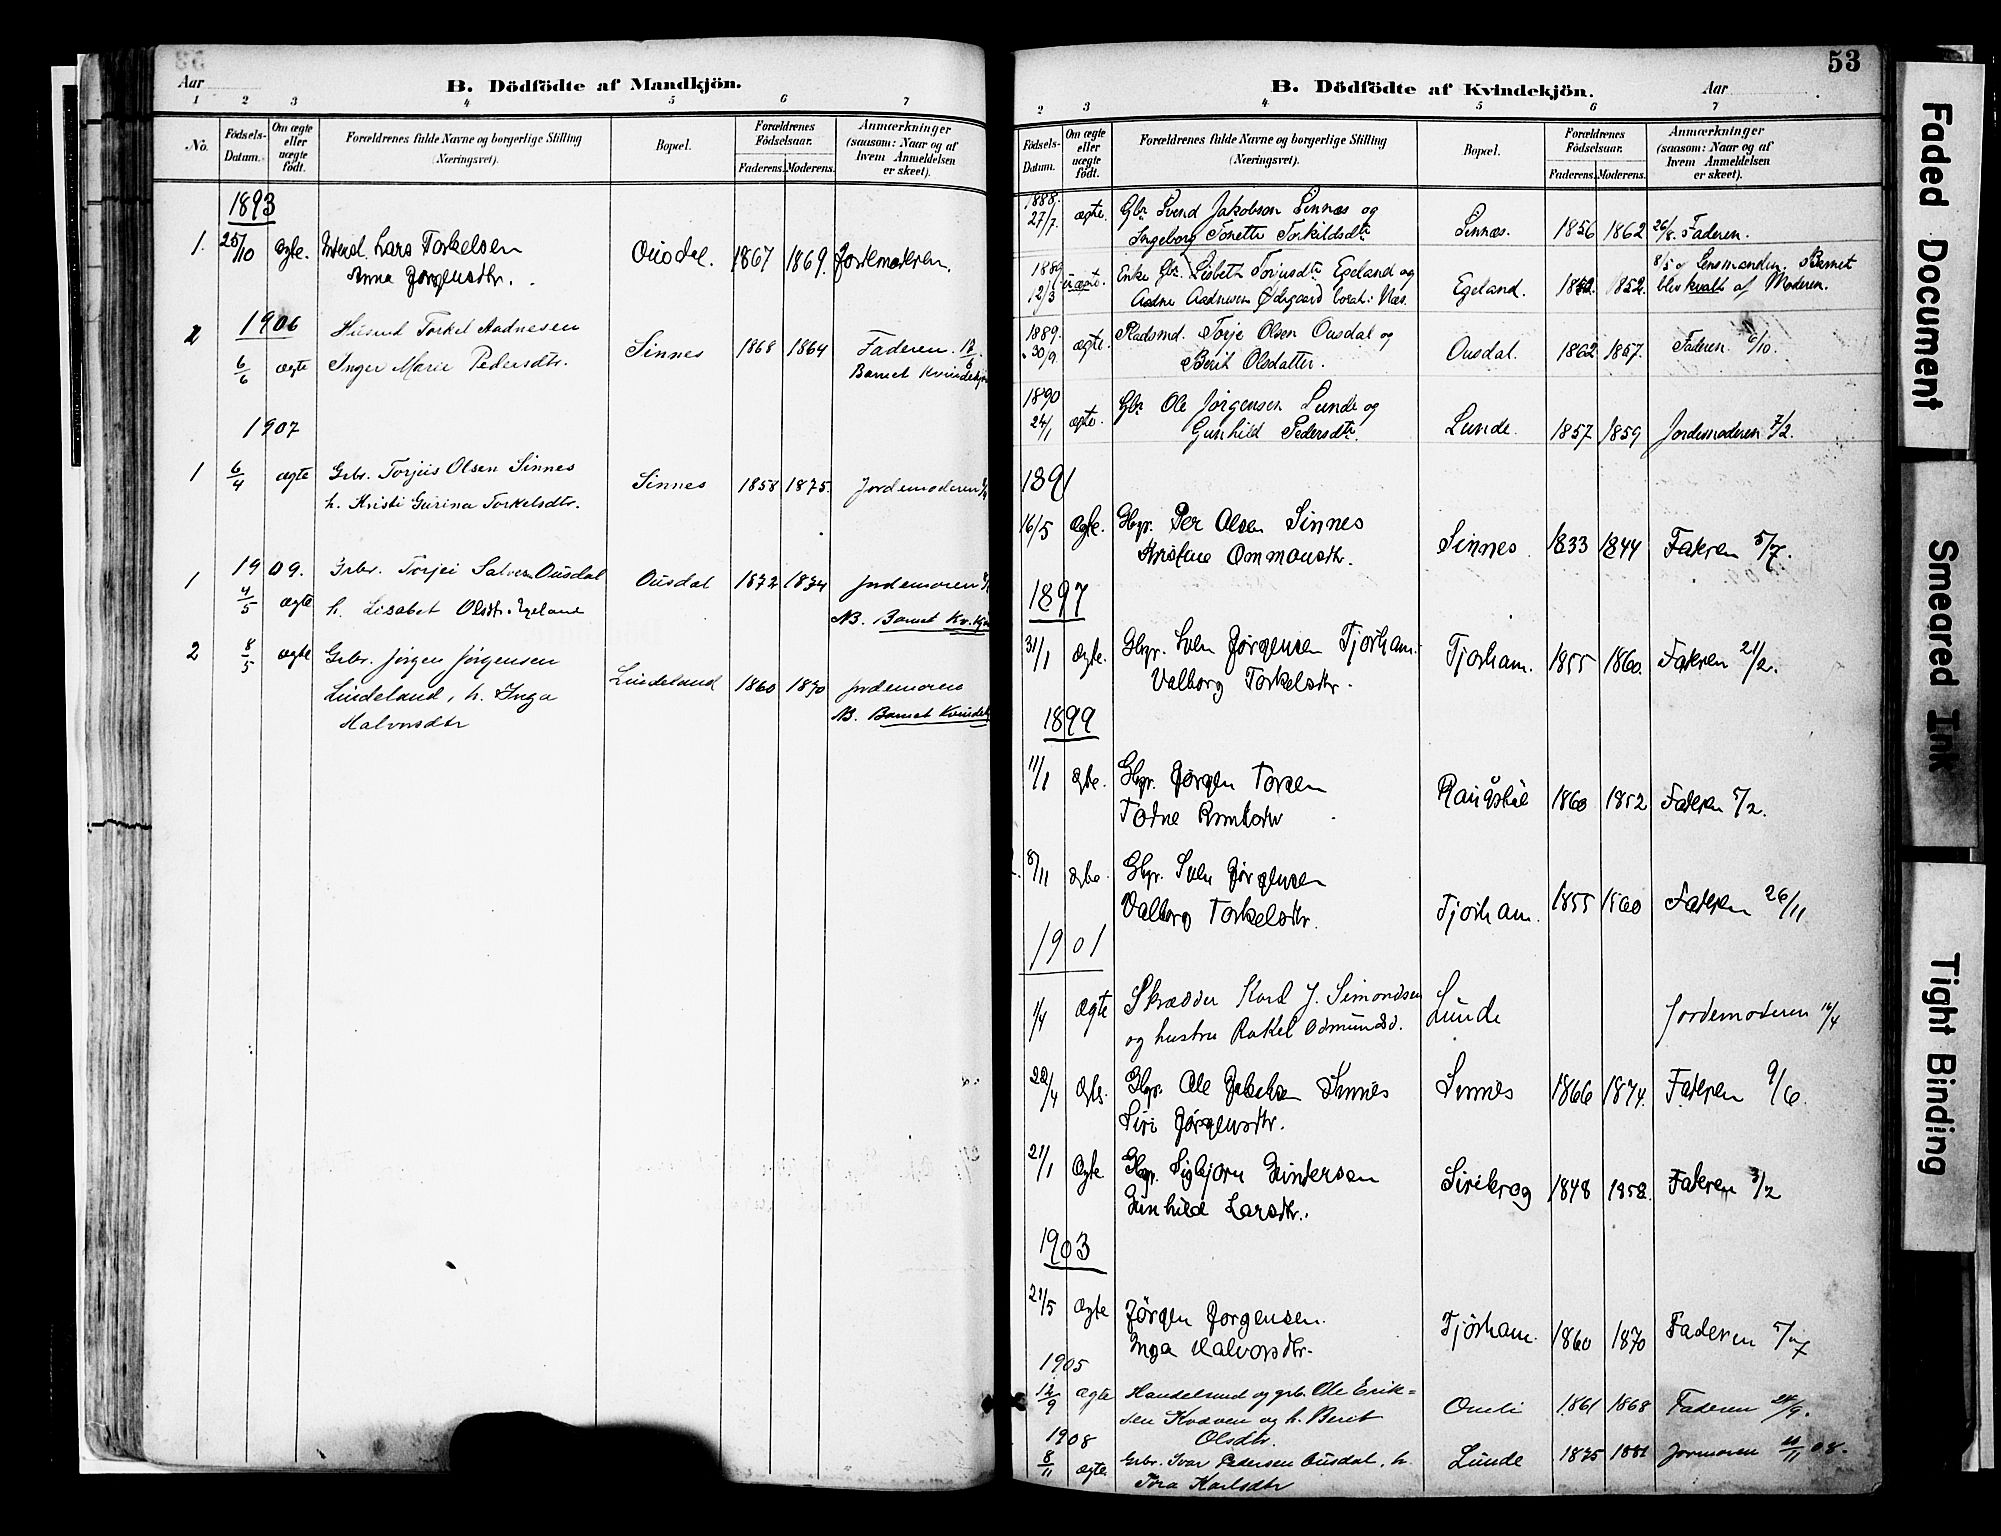 Aar
B. Dödfödte af Mandkjön.
1 2 3 4 5 6 7
No.
Födsels-Datum.
Om ægte eller uægte födt.
Forældrenes fulde Navne og borgerlige Stilling (Næringsvei).
Bopæl.
Forældrenes Födselsaar.
Faderens. Moderens.
Anmærkninger (saasom: Naar og af hvem Anmeldelsen er skeet).
1893
1. 25/10 ægte. Lars Torkelsen Ousdal. 1867 1869. Jordemoderen.
Anna Jørgensdtr.
1906
2 6/6 ægte Husmd Torkel Aadnesen Sinnes 1868 1864 Faderen 12/6
Inger Marie Pedersdtr. Barnet Kvindekjøn
1907
1 6/4 ægte Grbr. Torjuis Olsen Sinnes Sinnes 1858 1875. Jordemoderen
h. Kristi Gurina Torkelsdtr.
1909.
1 4/5 ægte Grbr. Torjei Salves. Ousdal Ousdal 1872 1834 Jordemoren
h. Lisabet Olsdtr. Egeland NB. Barnet Kv.kjø
2 8/5 ægte Grbr. Jörgen Jørgensen Lindeland 1860 1870 Jordemoren
Lindeland, h. Inga NB. Barnet Kvindekj
Halvorsdtr
53
B. Dödfödte af Kvindekjön.
Aar
2 3 4 5 6 7
Födsels-Datum.
Om ægte eller uægte födt.
Forældrenes fulde Navne og borgerlige Stilling (Næringsvei).
Bopæl.
Forældrenes Födselsaar.
Faderens. Moderens.
Anmærkninger (saasom: Naar og af hvem Anmeldelsen er skeet).
1888. 27/7. ægte. Gbr Svend Jakobsen Sinnes og Sinnes. 1856 1862 26/8. Faderen.
Ingeborg Tonette Torkildsdtr
1889 12/3 uægte. Enke Gbr. Lisbeth Torjusdtr Egeland og Egeland. 1852. 1852. 8/5 Lensmanden. Barnet
Aadne Aadnesen Ødegaard blev kvalt af Moderen.
1889. 30/9. ægte. Pladsmd. Torje Olsen Ousdal og Ousdal. 1862 1857. Faderen 6/10.
Berit Olsdatter.
1890 24/1 ægte. Gbr Ole Jørgensen Lunde og Lunde. 1857 1859 Jordemoderen 7/2.
Gunhild Pedersdtr.
1891
16/5 ægte. Gbr. Per Olsen Sinnes Sinnes. 1833 1844 Faderen 5/7.
Kristine Ommonsdtr.
1897
31/1 ægte. Gbr. Sven Jørgensen Tjorham. Tjorham. 1855 1860. Faderen 21/2.
Valborg Torkelsdtr.
1899
11/1 ægte. Gbr. Jørgen Torsen 1860 1852 Faderen 5/2.
Todne
8/11 ægte. Gbr. Sven Jørgensen Tjorham. 1855 1860 Faderen 26/11
Valborg Torkelsdtr.
1901
1/4 ægte Skrædder Kord J. Simondsen Lunde Jordemoderen 16/4
og hustru Rakel Odmundsd.
22/4 ægte. Gbr. Ole Sinnes Sinnes 1866 1874. Faderen 9/6.
Siri Jørgensdtr.
21/1 ægte Gbr. Sigbjørn Guntersen Sirekrog 1848 1858. Faderen 3/2
Gunhild Larsdtr.
1903
21/5 ægte Jørgen Jorgensen. Tjørham. 1860 1870 Faderen 5/7
Inga Halvorsdtr.
1905
12/9 ægte Handelsmd og grb. Ole Erik= Omli 1861 1868 Faderen 24/9.
sen Kvæven og h. Berit
Olsdtr.
1908
8/11 ægte Grbr. Ivar Pedersen Ousdal, h. Lunde 1875 1881 Jormoren 11/11 08.
Tora Karlsdtr
Faded Document
Smeared Ink
Tight Binding